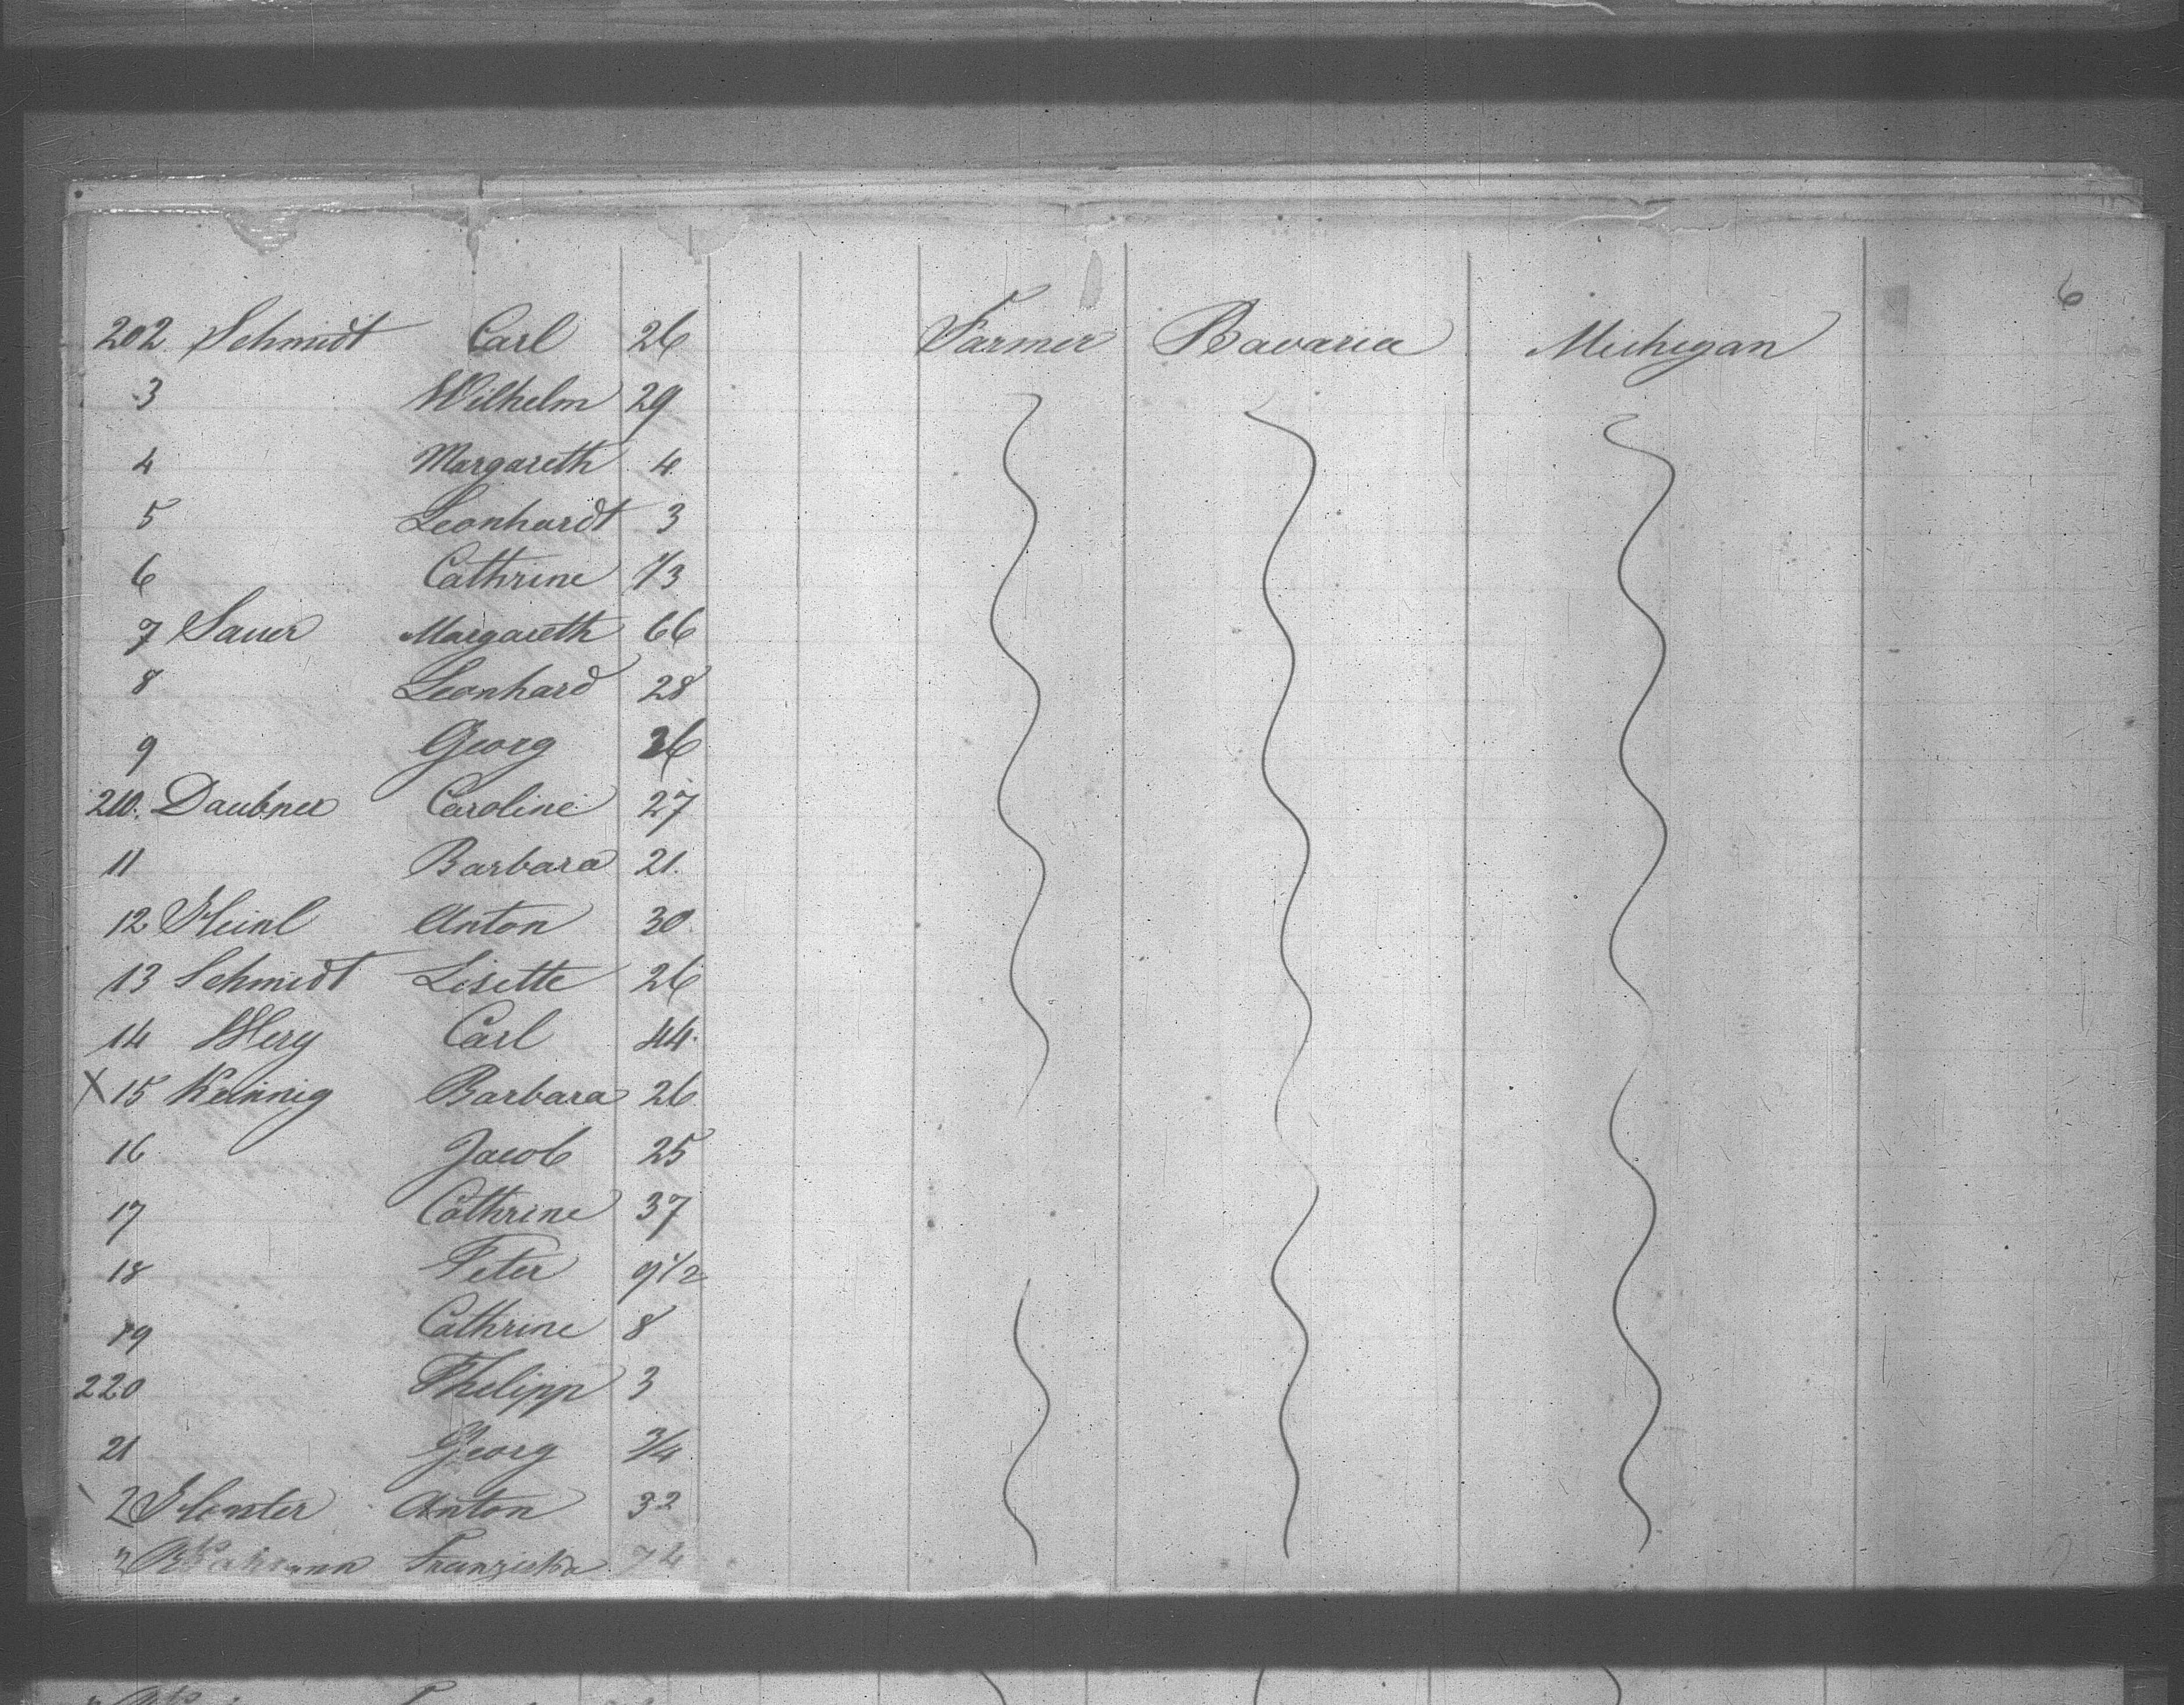 6
202 Schmidt Carl 26 Farmer Bavaria Michigan
3 Wilhelm 29
4 Margareth 4
5 Leonhardt 3
6 Cathrine 1/3
7 Sauer Margareth 66
8 Leonhard 28
9 Georg 26
210. Daubner Caroline 27
11 Barbara 21.
12 Heinl Anton 30
13 Schmidt Lisette 26
14 Carl 44
X 15 Barbara 26
16 Jacob 25
17 Cathrine 37
18 Peter 9 1/2
19 Cathrine 8
220 Philipp 3
21 Georg 3/4
2 Anton 32
Franziska